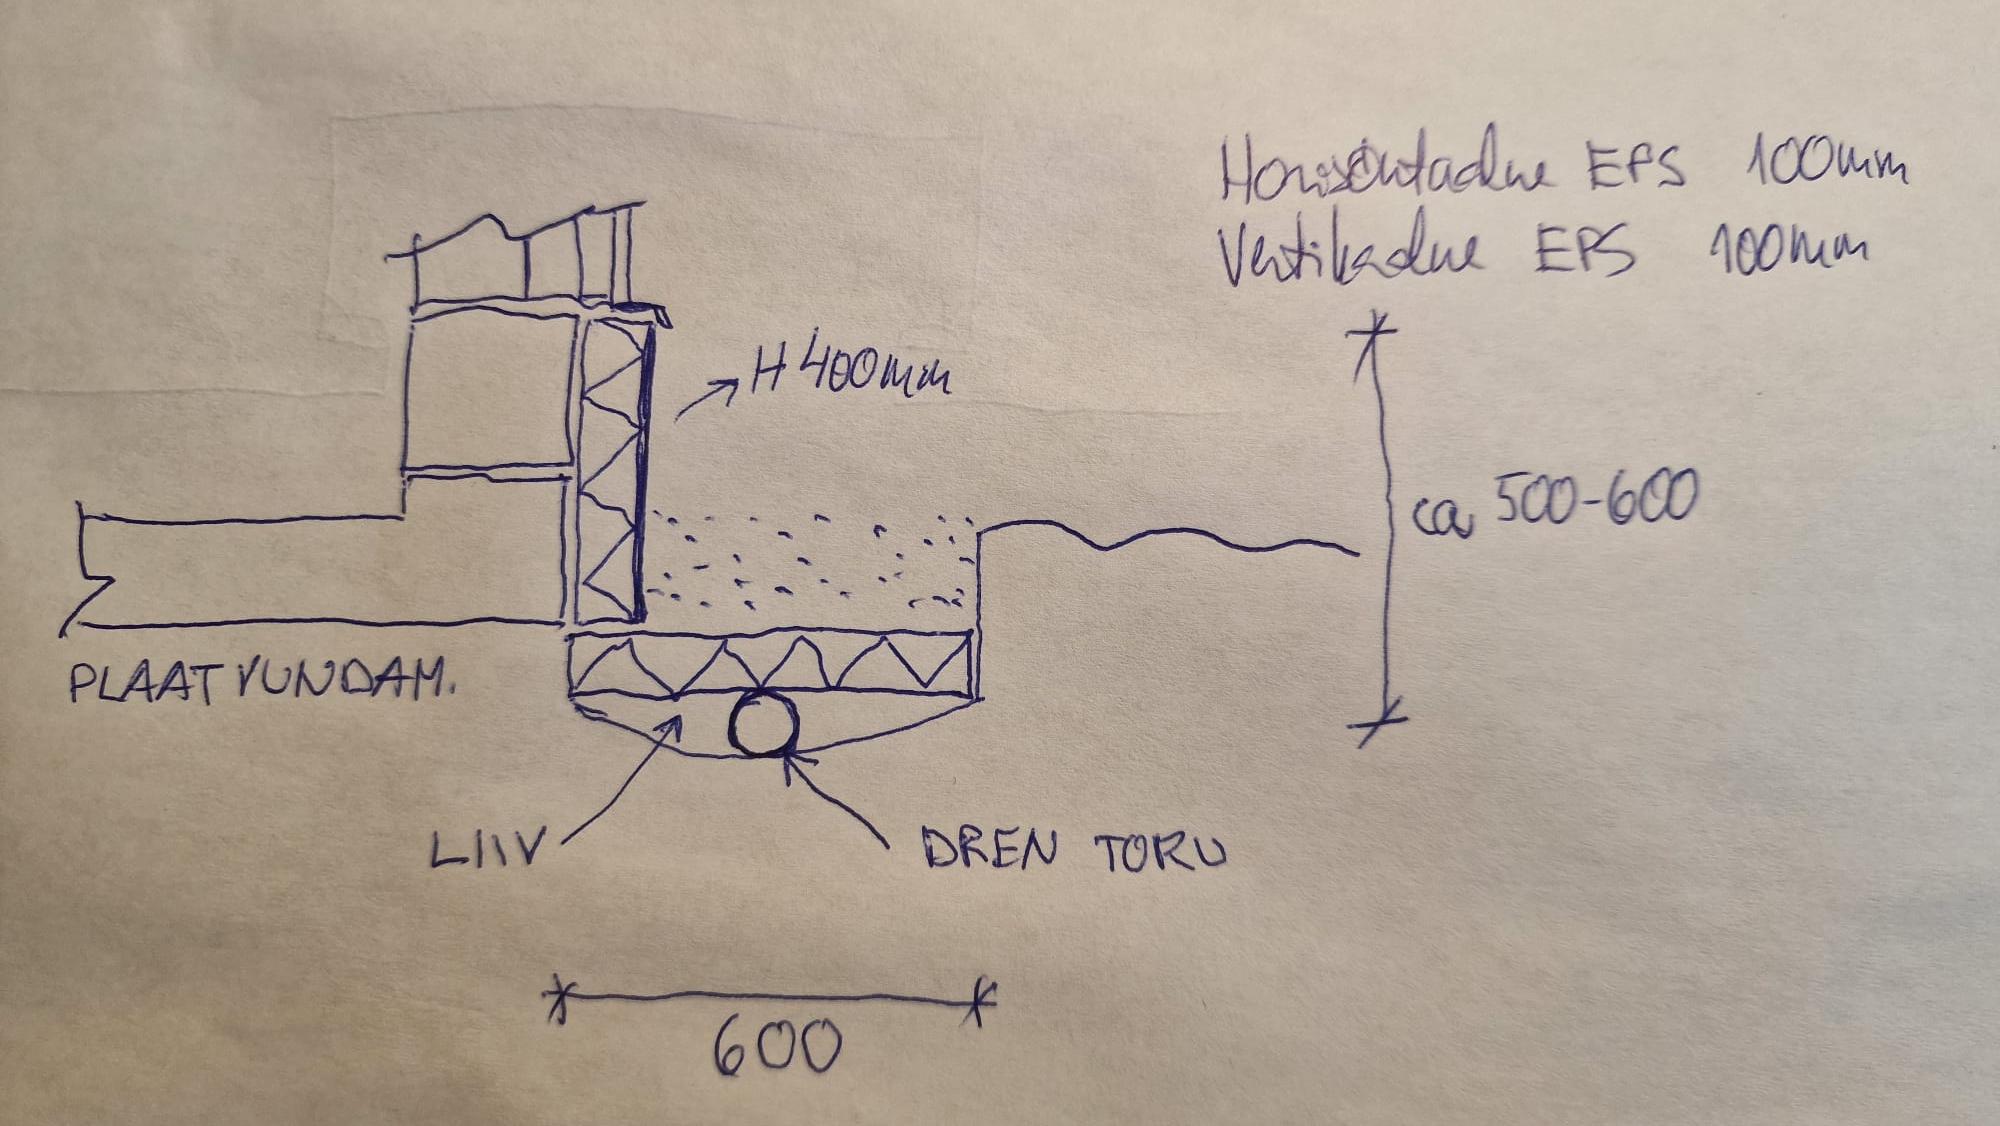 Horisontaalne EPS 100mm
Vertikaalne EPS 100mm
H 400mm
ca 500-600
PLAATVUNDAM.
LIIV
DREN TORU
600